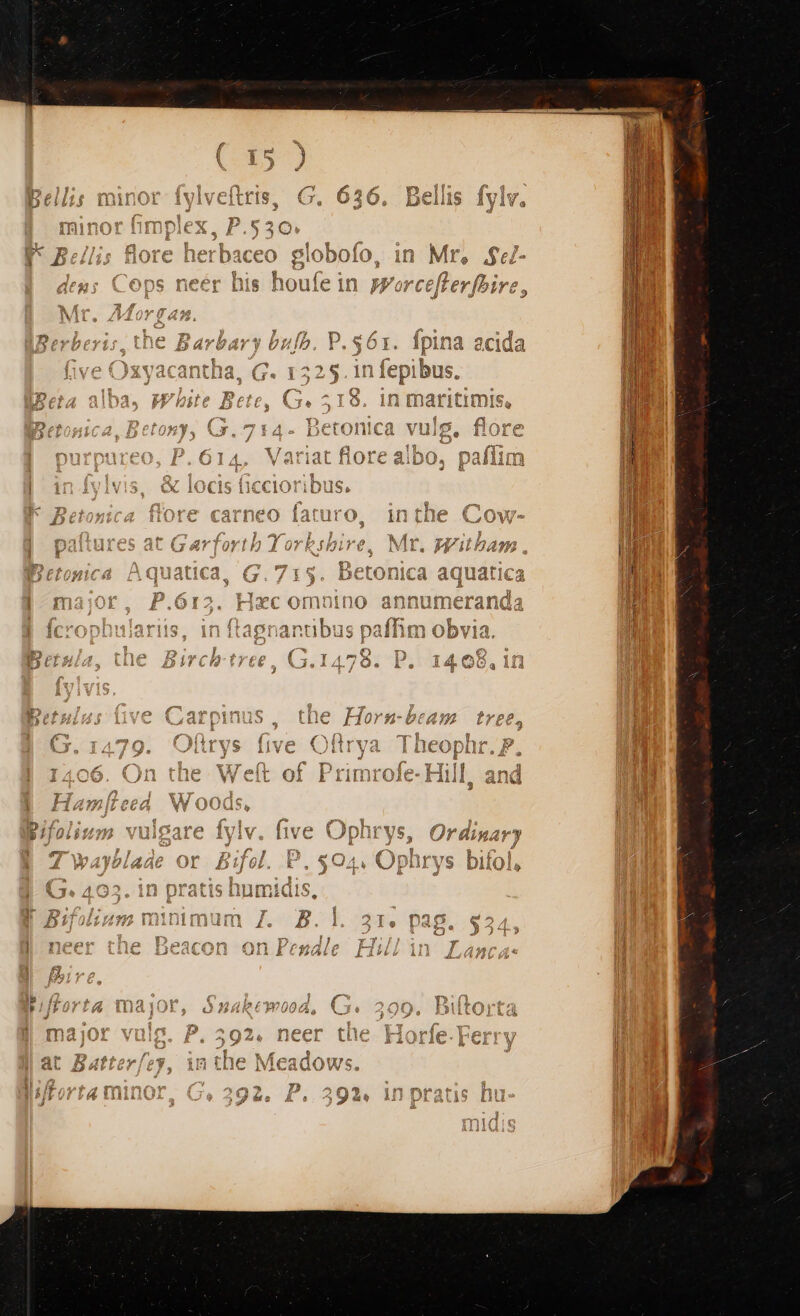 ( 15 )
Bellis minor ſylveſtris, G. 636. Bellis ſylv.
minor ſimplex, P.530.
* Bellis flore herbaceo globoſo, in Mr. Sel-
dens Cops neer his houſe in Worceſterſhire,
Mr. Morgan.
Berberis, the Barbary buſh. P.561. ſpina acida
ſive Oxyacantha, G. 1325. in ſepibus.
Beta alba, White Bete, G. 318. in maritimis.
Betonica, Betony, G. 714. Betonica vulg. flore
purpureo, P. 614. Variat flore albo, paſſim
in ſylvis, & locis ſiccioribus.
* Betonica flore carneo ſaturo, in the Cow-
paſtures at Garforth Yorkshire, Mr. Witham.
Betonica Aquatica, G. 715. Betonica aquatica
major, P.613. Hæc omnino annumeranda
ſcrophulariis, in ſtagnantibus paſſim obvia.
Betula, the Birch-tree, G.1478. P. 1408. in
ſylvis.
Betulus ſive Carpinus, the Horn-beam tree,
G. 1479. Oſtrys ſive Oſtrya Theophr. P.
1406. On the Weſt of Primroſe-Hill, and
Hamſteed Woods.
Bifolium vulgare ſylv. ſive Ophrys, Ordinary
Twayblade or Bifol. P. 504. Ophrys bifol.
G. 403. in pratis humidis.
* Bifolium minimum J. B. l. 31. pag. 534,
neer the Beacon on Pendle Hill in Lanca-
ſhire.
Biſtorta major, Snakewood, G. 399. Biſtorta
major vulg. P. 392. neer the Horſe-Ferry
at Batterſey, in the Meadows.
Biſtorta minor, G. 392. P. 392. in pratis hu-
midis